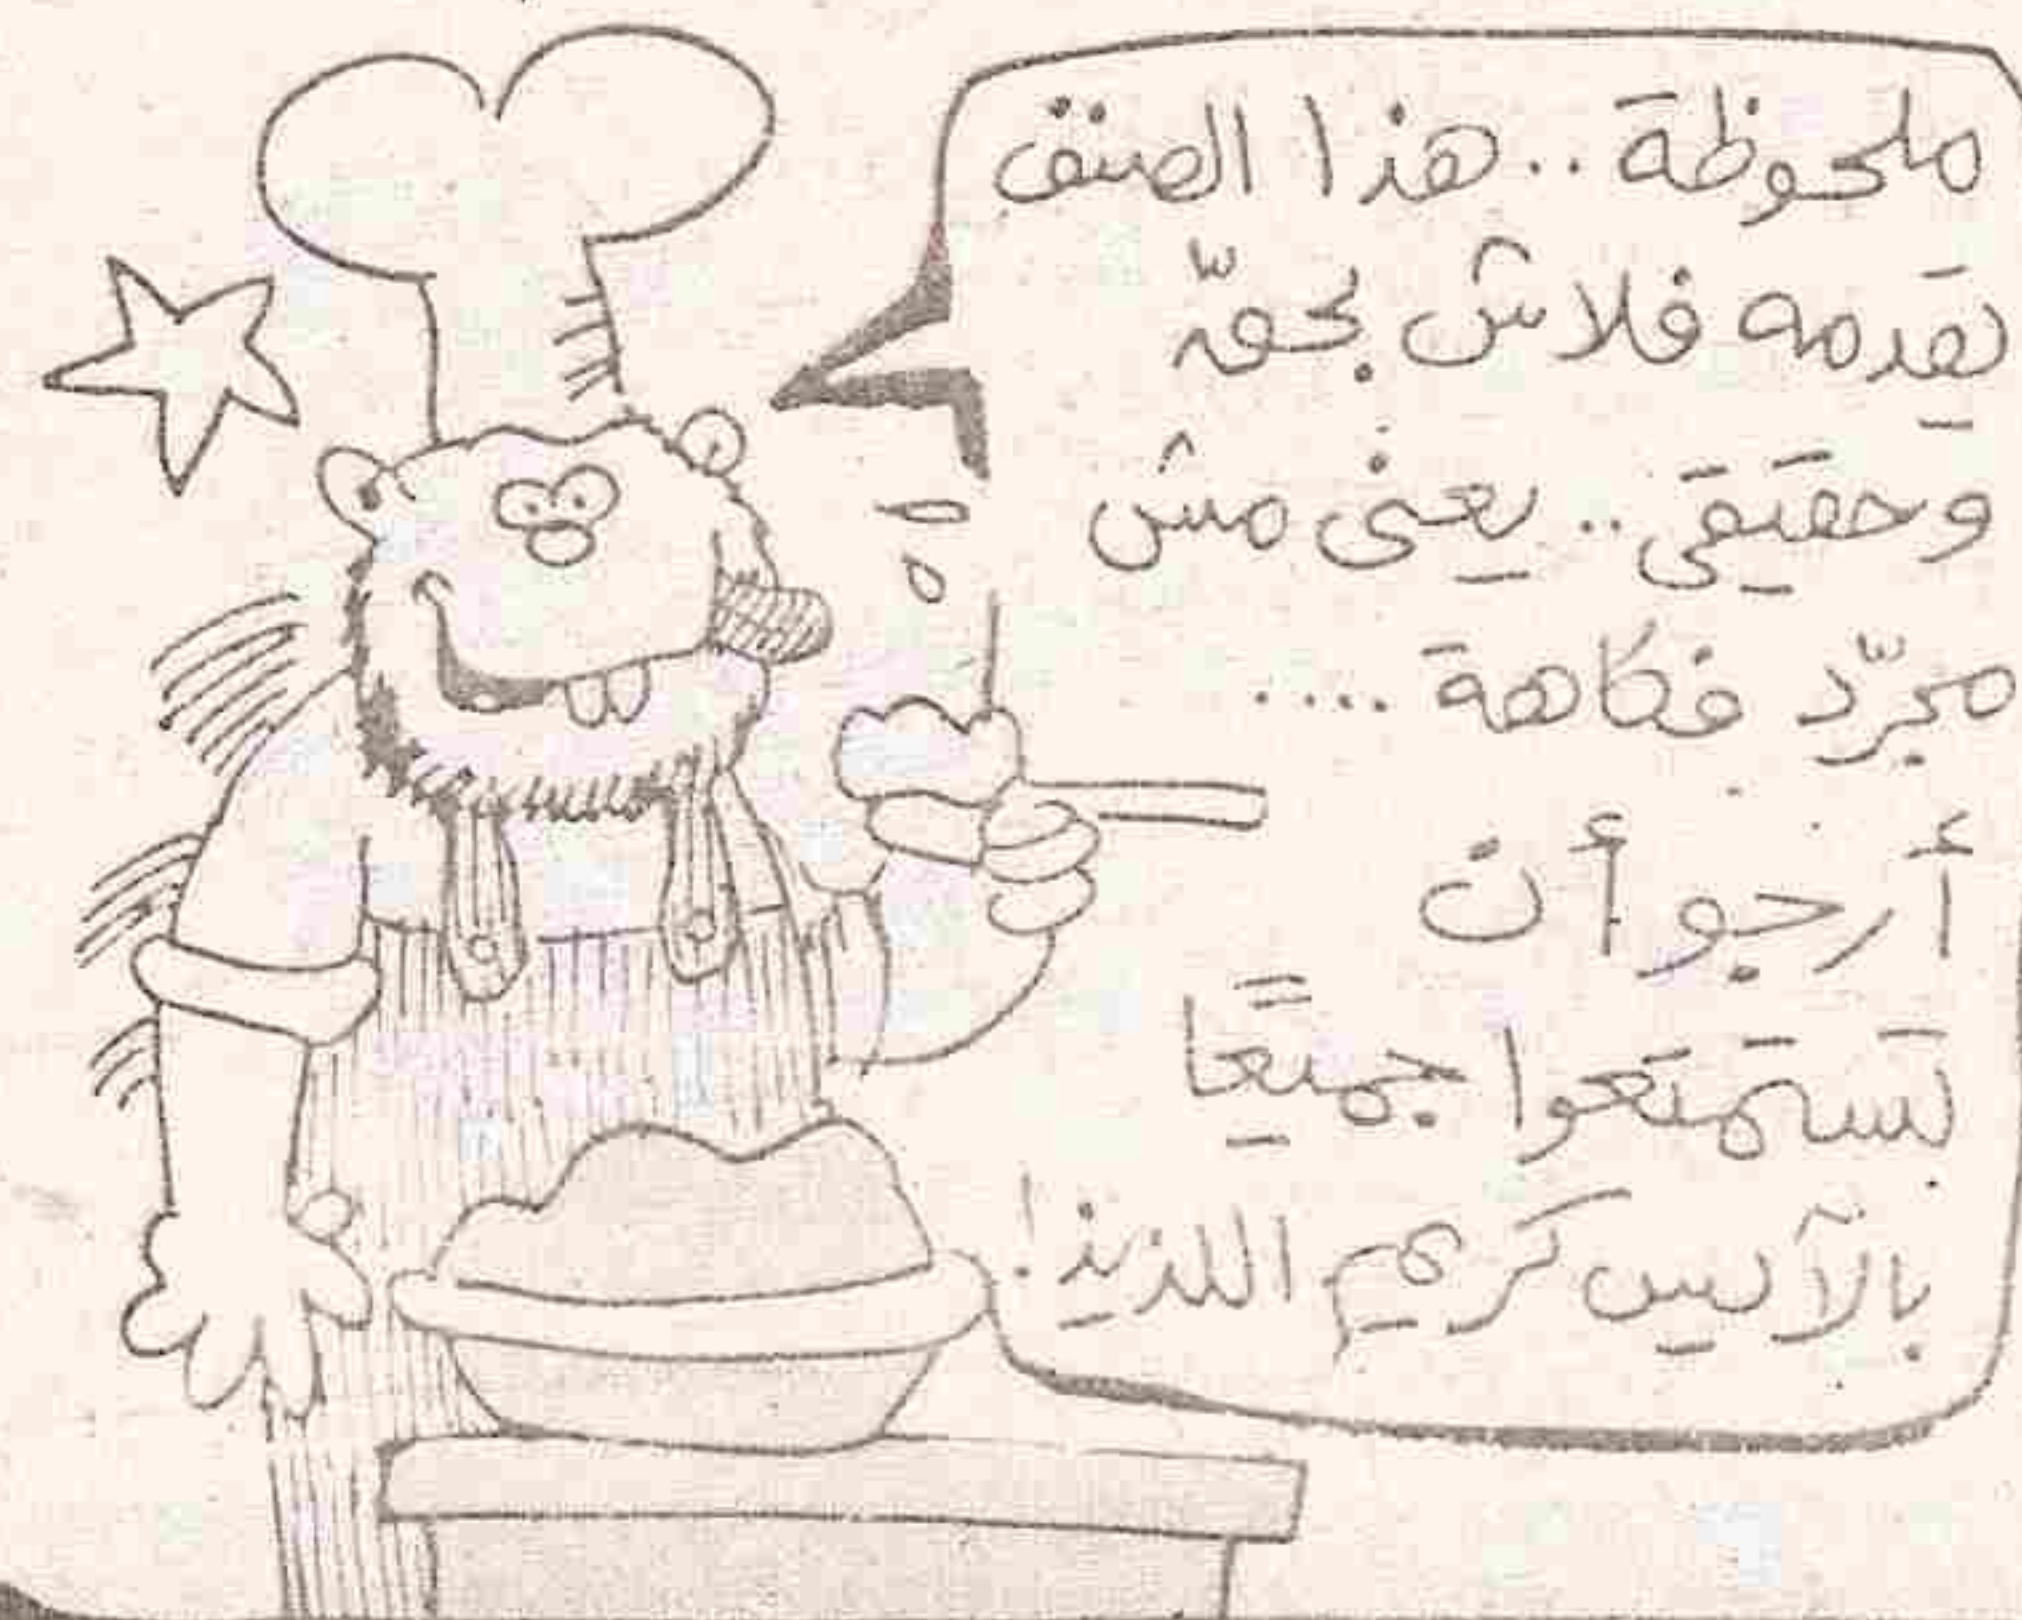 ملحوظة .. هذا الصنف
يقدمه فلاش بحقّ
وحقيقى .. يعنى مش
مجرّد فكاهة ....
أرجو أن
تستمتعوا جميعًا
بالآيس كريم اللذيذ!